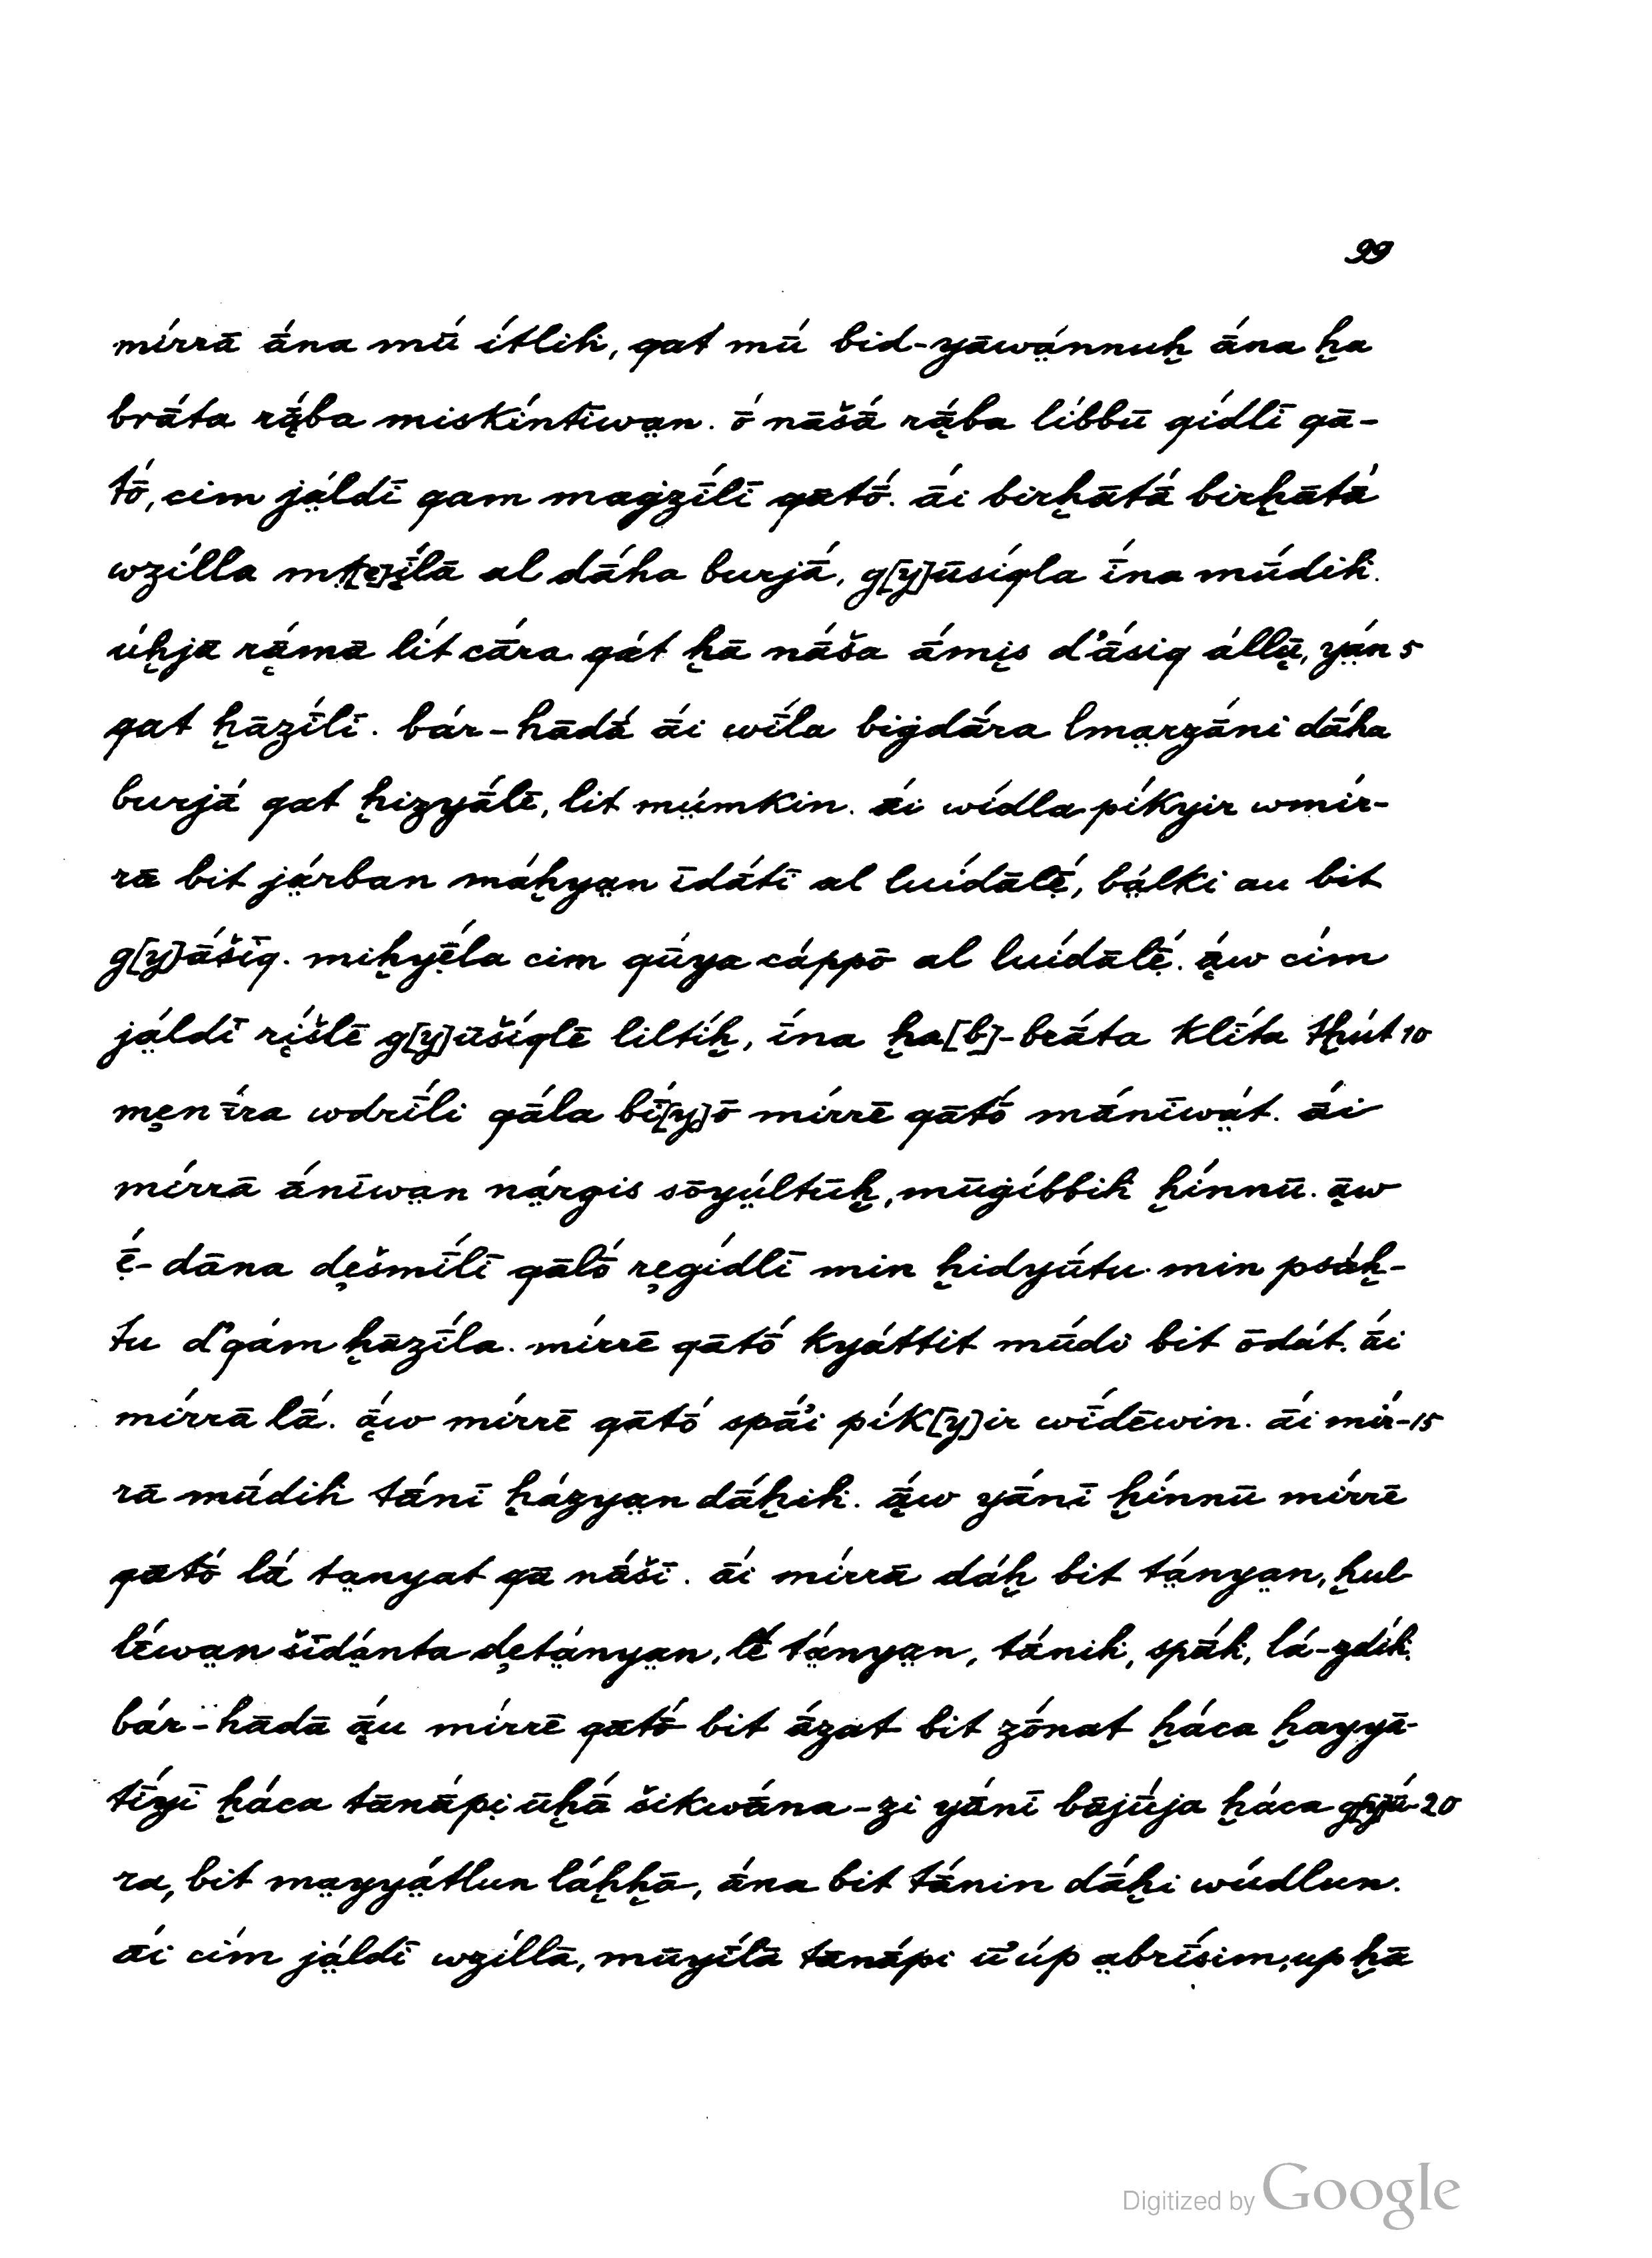 99
mírrā ā́na mū́ ítlih, qat mū́ bid-yāwä́nnuḫ ā́na ḫa
brā́ta rą̄́ba miskíntīwạ̈n. ṓ nāšā́ rą̄́ba líbbū qídlī qā-
tṓ, cim jä́ldī qam maġzī́lī qātṓ. ā́i birḫātā́ birḫātā́
wzílla al dā́ha burjā́, g[y]ūsíqla ī́na mū́dih.
úḫjā rą̄́mā lít cā́ra qát ḫā nā́ša ā́mįs d'ā́siq állū̧, yä́n 5
qat ḫāzī́lī. bár-hādā́ ā́i wī́la biġdā́ra lmạ̈rzā́ni dā́ha
burjā́ qat ḫizyā́lē, lit mǘmkin. ā́i wídla píkyir wmír-
rā bit jä́rban mā́ḫyạ̈n īdā́tī al luídālẹ̄́, bä́lki au bit
g[y]ā́šīq. miḫyẹ̄́la cim qū́ya cáppō al luídālẹ̄́. ą̄́w cím
jä́ldī rį́šlē g[y]ūšíqlē liltíḫ, ī́na ḫa[b]-brā́ta klī́ta tḫút 10
mȩn īra wdrī́li qā́la bī́[y]ō mírrē qātṓ mā́nīwä́t. ā́i
mírrā ā́nīwạ̈n nä́rgis sōyǘltūḫ, mūġíbbih ḫínnū. ą̄w
ẹ̄́-dāna dȩšmī́lī qālṓ rȩgídlī min ḫidyū́tu min psā́ḫ-
tu d'qám ḫāzī́la. mírrē qātṓ kyáttit mū́di bit ōdát. ā́i
mírrā lā́. ą̄́w mírrē qātṓ spā́'i pík[y]ir wī́dēwin. ā́i mír- 15
rā mū́dih tā́nī ḫā́zyạ̈n dā́ḫih. ą̄́w yā́nī ḫínnū mírrē
qātṓ lā́ tạ̈nyat qā nā́šī. ā́i mírrā dā́ḫ bit tä́nyạ̈n, ḫul-
lḗwạ̈n šīdä́nta dȩtä́nyạ̈n, lḗ tä́nyạ̈n, tā́nih, spā́h, lā́-zdíh.
bár-hādā ą̄́u mírrē qātṓ bit ā́zat bit zṓnat ḫáca ḫayyā-
tī́yī ḫáca tānā́pi ūḫā́ šikwā́na-zi yā́nī bājū́ja ḫáca g[y]ū́- 20
ra, bit mạ̈yyä́tlun láḫḫā, ā́na bit tā́nin dā́ḫi wúdlun.
ā́i cím jä́ldī wzíllā, mūyī́lā tānā́pi ū'úp ạ̈brī́sim, up ḫā
Digitized by Google